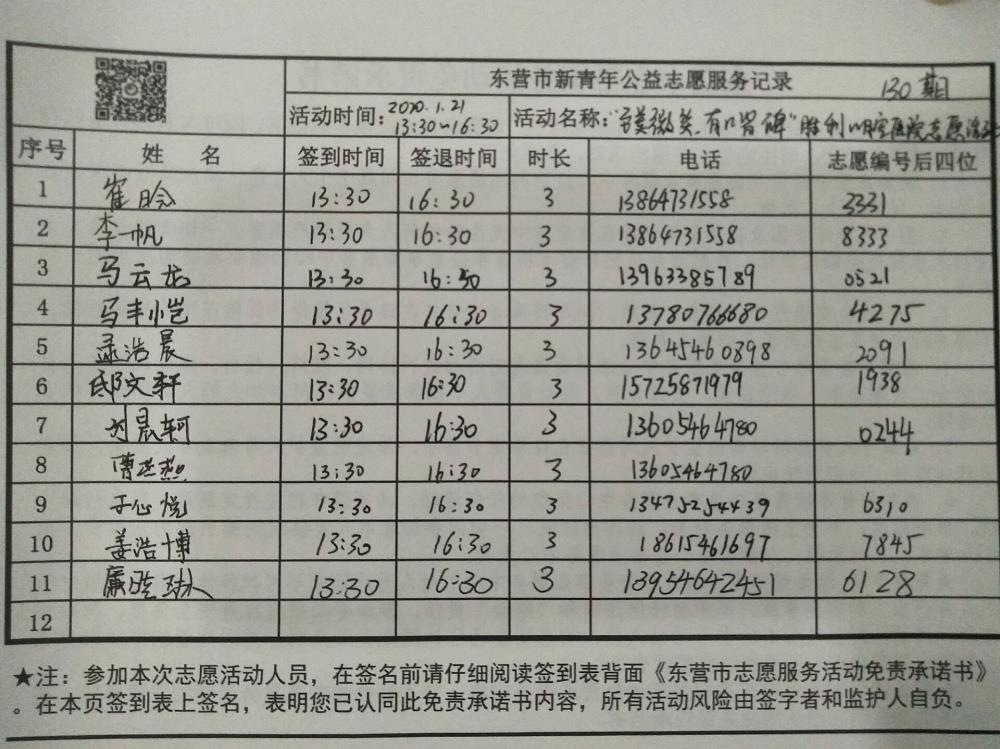 东营市新青年公益志愿服务记录 130期
活动时间：2020.1.21 13:30~16:30 活动名称：微笑、有口皆碑"胜利口腔医院志愿活动
序号 姓 名 签到时间 签退时间 时长 电话 志愿编号后四位
1 崔晗 13:30 16:30 3 13864731558 3331
2 李一帆 13:30 16:30 3 13864731558 8333
3 马云龙 13:30 16:30 3 13963385789 0521
4 马丰恺 13:30 16:30 3 13780766680 4275
5 逯浩晨 13:30 16:30 3 13645460898 2091
6 邸文轩 13:30 16:30 3 15725871979 1938
7 刘晨轲 13:30 16:30 3 13605464780 0244
8 曹燕 13:30 16:30 3 13605464780
9 于心悦 13:30 16:30 3 13475254439 6310
10 姜浩博 13:30 16:30 3 18615461697 7845
11 廉晓琳 13:30 16:30 3 13954642451 6128
12
★注：参加本次志愿活动人员，在签名前请仔细阅读签到表背面《东营市志愿服务活动免责承诺书》
。在本页签到表上签名，表明您已认同此免责承诺书内容，所有活动风险由签字者和监护人自负。